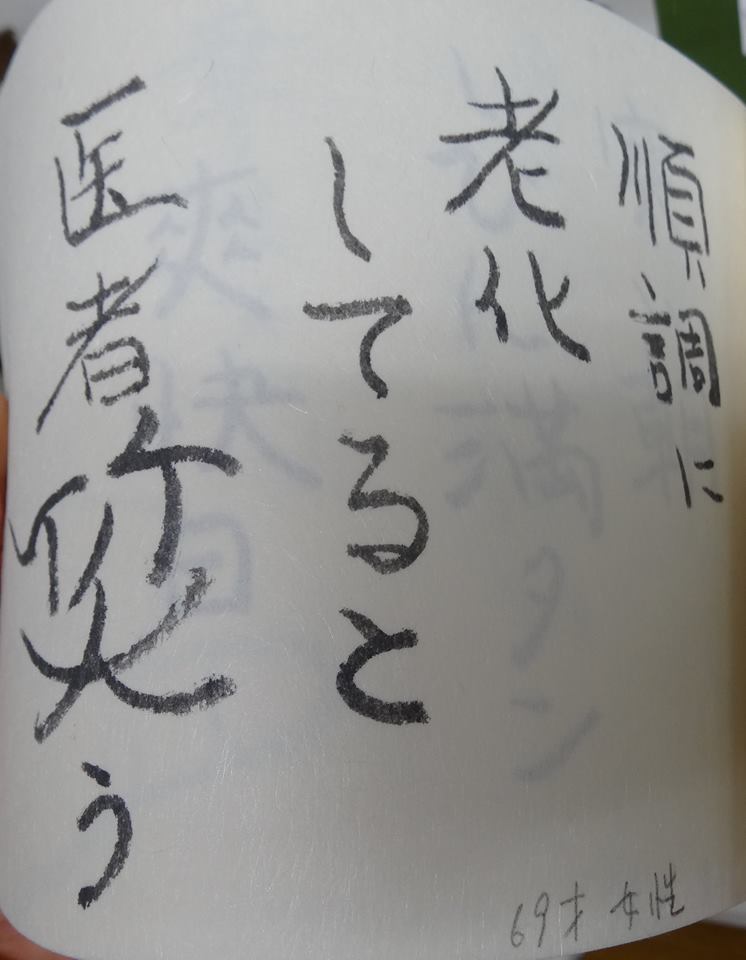 順調に
老化
してると
医者笑う
69才 女性